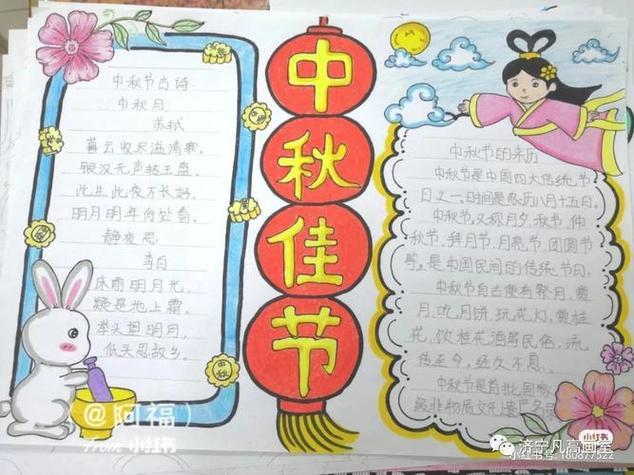 中秋节古诗
中秋月
苏轼
暮云收尽溢清寒，
银汉无声转玉盘。
此生此夜不长好，
明月明年何处看。
静夜思
李白
床前明月光，
疑是地上霜。
举头望明月，
低头思故乡。
中秋佳节
中秋节的来历
中秋节是中国四大传统节
日之一。时间是农历八月十五日。
中秋节，又称月夕、秋节、仲
秋节、拜月节、月亮节、团圆节
等。是中国民间的传统节日。
中秋节自古便有祭月、赏
月、吃月饼、玩花灯、赏桂
花、饮桂花酒等民俗，流
传至今，经久不息。
中秋节是首批国家
级非物质文化遗产名录
(@阿福)
From 小红书
小红书
济宁凡高画室
小红书号: 180877522